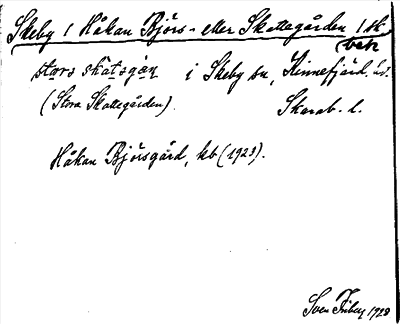 Skeby 1 Håkan Björs- eller Skattegården 1 sk.
ben
stora skatagån i Skeby sn, Kinnefjärd. hd.
(Stora Skattegården). Skarab. l.
Håkan Björsgård, kb (1929).
Sven Friberg 1928